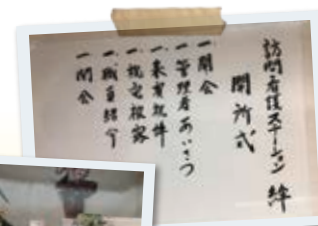 訪問看護ステーション 絆
開所式
一 開会
一 管理者あいさつ
一 来賓祝辞
一 祝電披露
一 職員紹介
一 閉会